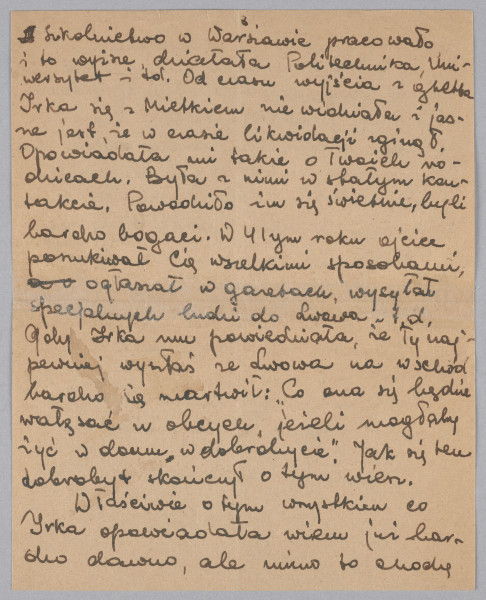 3
Szkolnictwo w Warszawie pracowało
i to wyższe, działała Politechnika, Uni-
wersytet i t.d. Od czasu wyjścia z ghetta
Irka się z Mietkiem nie widziała i jas-
ne jest, że w czasie likwidacji zginął.
Opowiadała mi także o Twoich ro-
dzicach. Była z nimi w stałym kon-
takcie. Powodziło im się świetnie, byli
bardzo bogaci. W 41 ym roku ojciec
poszukiwał Cię wszelkimi sposobami,
ogłaszał w gazetach, wysyłał
specjalnych ludzi do Lwowa i t.d.
Gdy Irka mu powiedziała, że Ty naj-
pewniej wyszłaś ze Lwowa na wschód
bardzo się martwił: „Co ona się będzie
wałęsać w obcych, jeżeli mogłaby
żyć w domu „w dobrobycie". Jak się ten
dobrobyt skończył o tym wiem.
Właściwie o tym wszystkim co
Irka opowiadała wiem już bar-
dzo dawno, ale mimo to chodzę